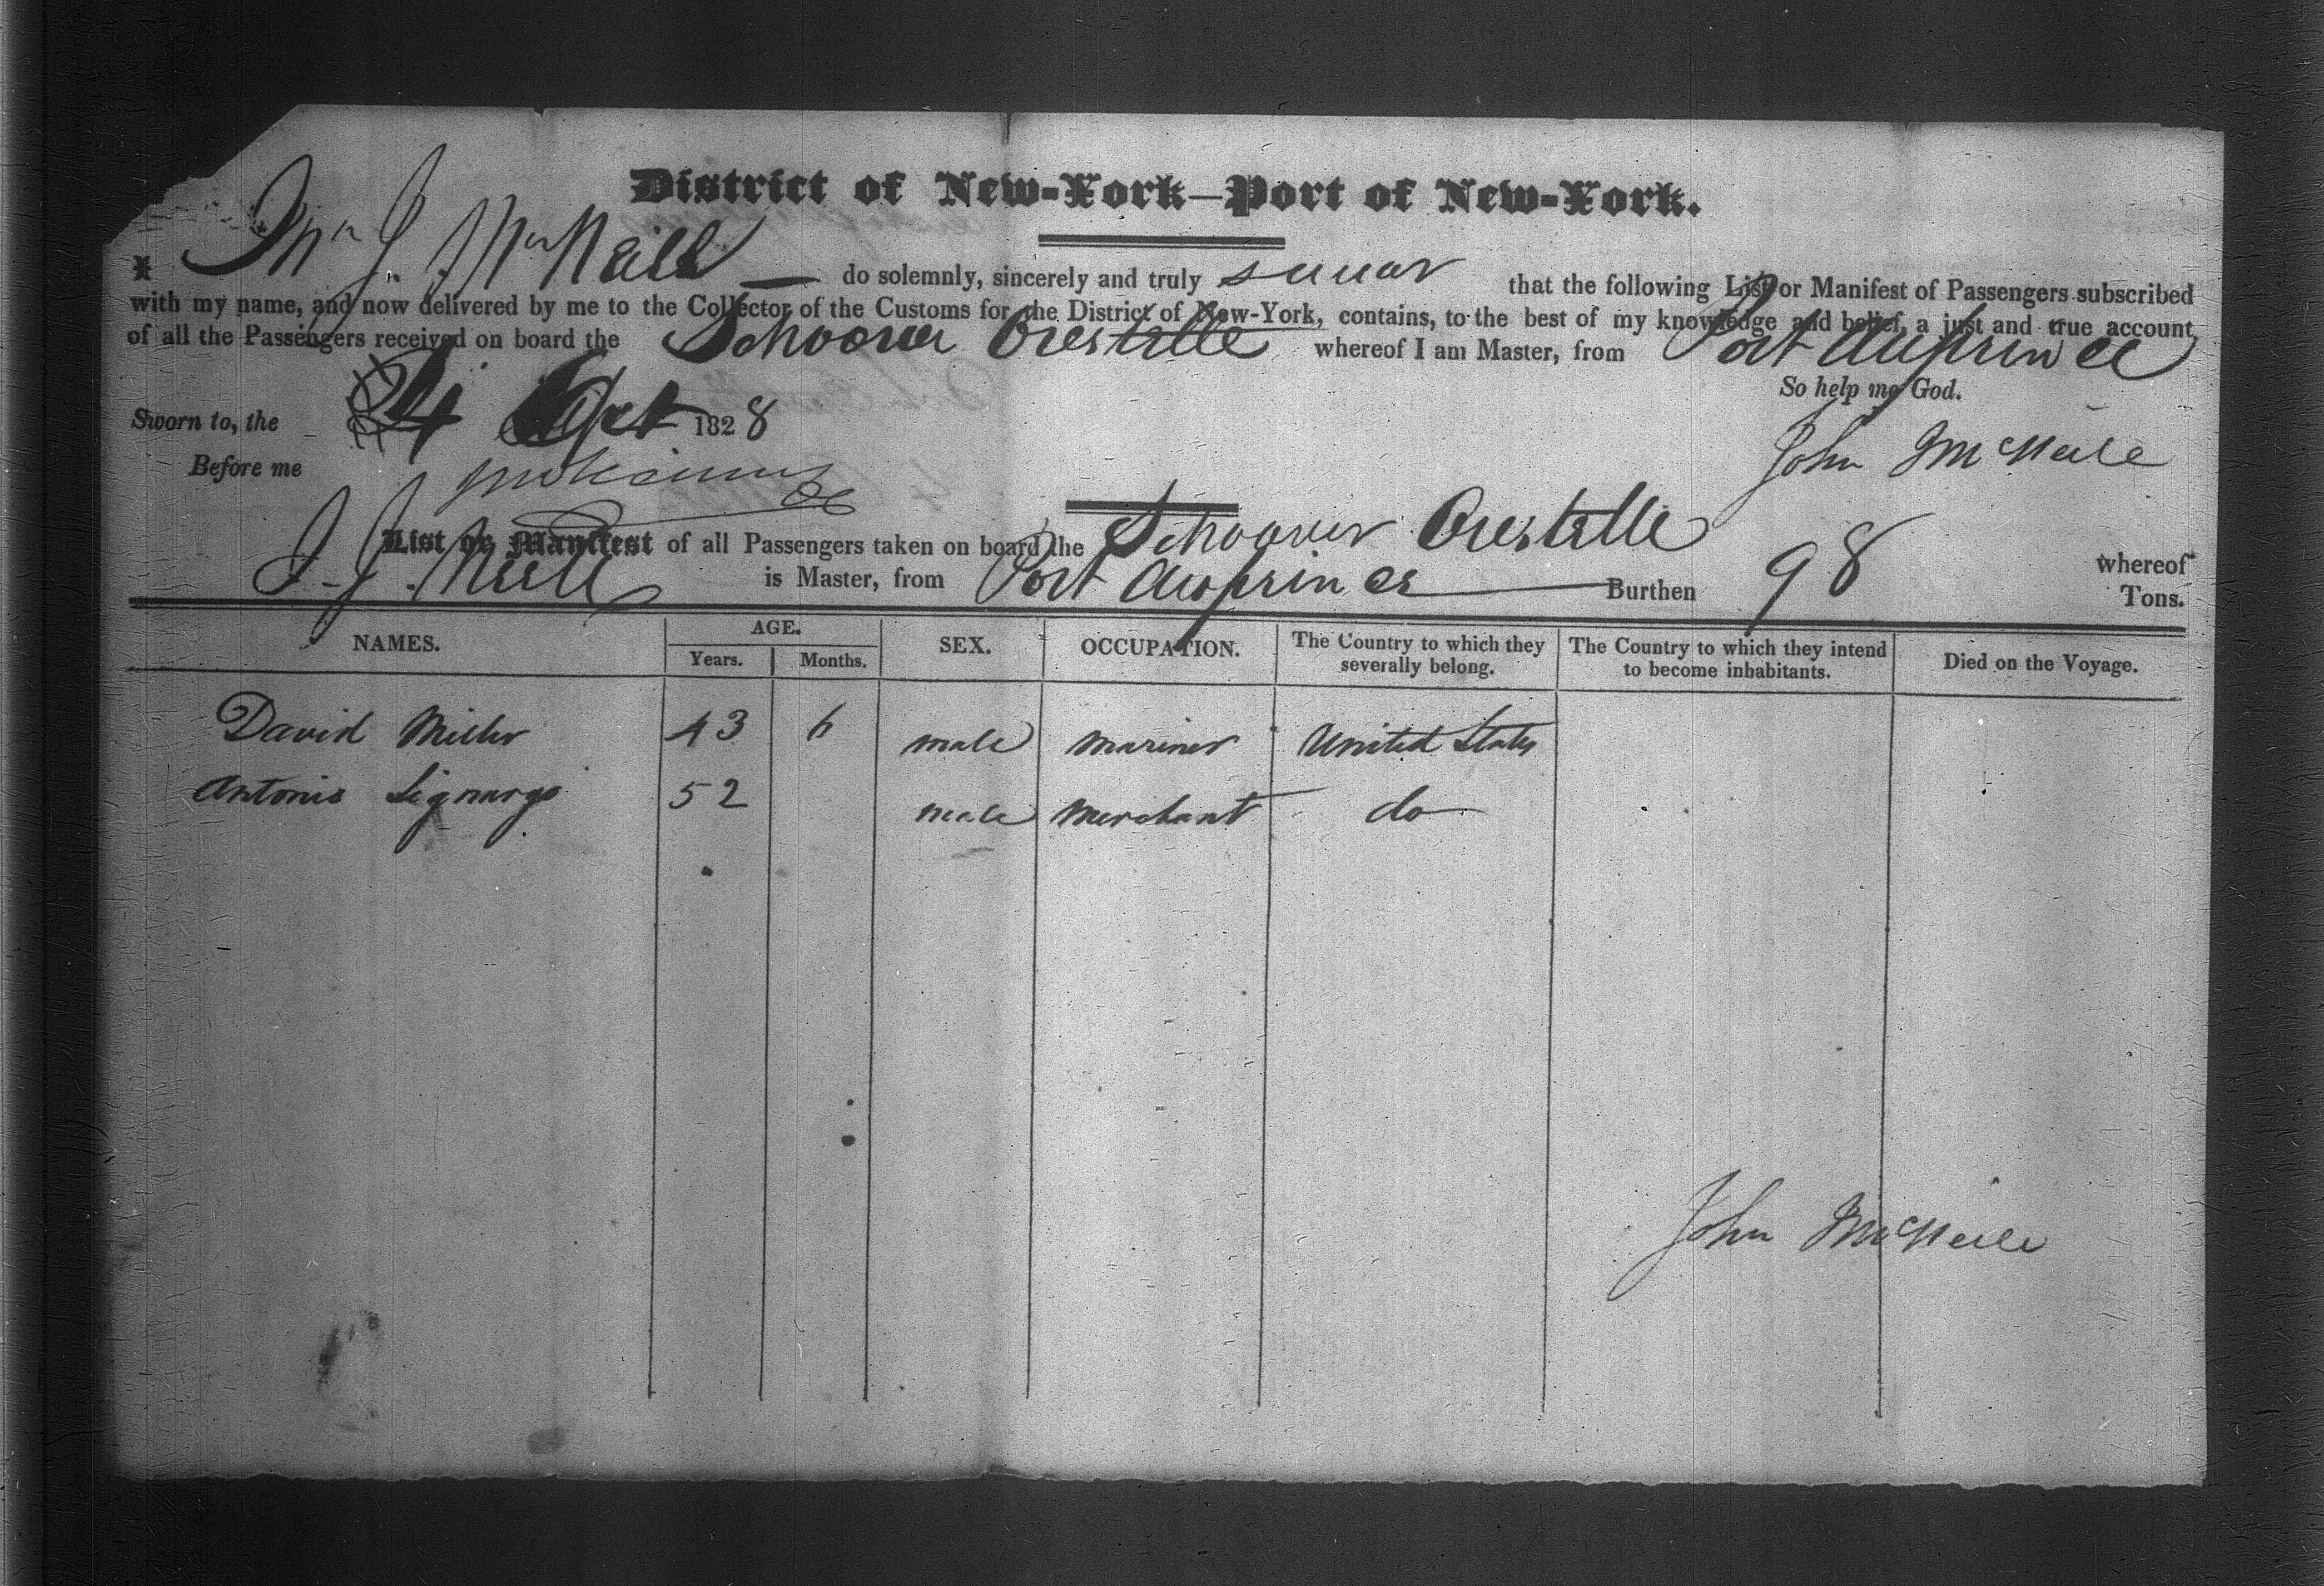 District of New-York—Port of New-York.
I Mr J. McNeill — do solemnly, sincerely and truly swear that the following List or Manifest of Passengers subscribed
with my name, and now delivered by me to the Collector of the Customs for the District of New-York, contains, to the best of my knowledge and belief, a just and true account
of all the Passengers received on board the Schooner whereof I am Master, from Port Auprince
So help me God.
Sworn to, the 4 Oct 1828
John McNeile
Before me
List or Manifest of all Passengers taken on board the Schooner whereof
J. J. is Master, from Port Auprince Burthen 98 Tons.
NAMES. AGE. SEX. OCCUPATION. The Country to which they severally belong. The Country to which they intend to become inhabitants. Died on the Voyage.
Years. Months.
David Miller 43 6 male mariner United States
Antonio 52 male merchant do
John McNeile